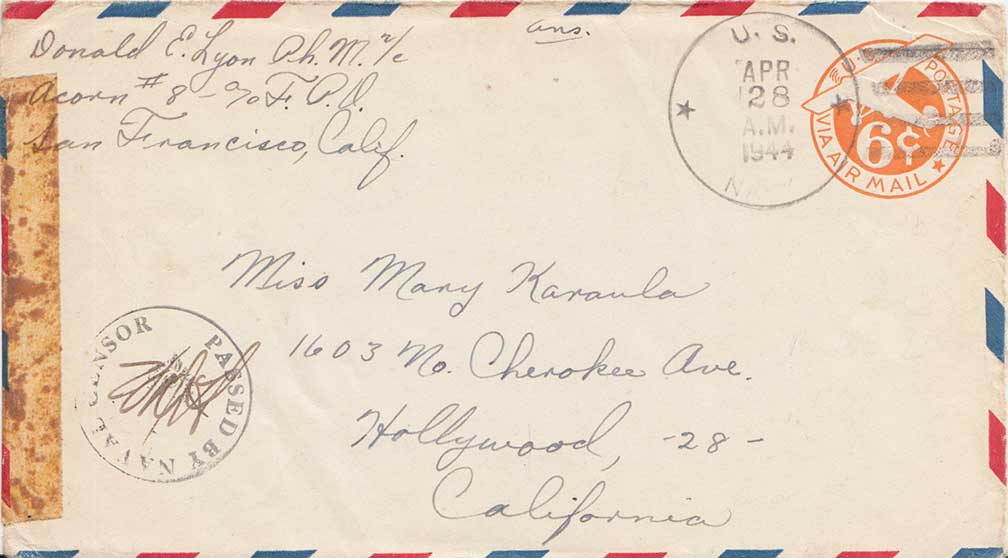 Donald E. Lyon Ph. M. 2/c
Acorn #8 - c/o F. P. O.
San Francisco, Calif.
ans.
U. S.
APR
28
A.M.
1944
U.S. POSTAGE
6¢
VIA AIR MAIL
Miss Mary Karaula
1603 No. Cherokee Ave.
Hollywood, -28-
California
PASSED BY NAVAL CENSOR